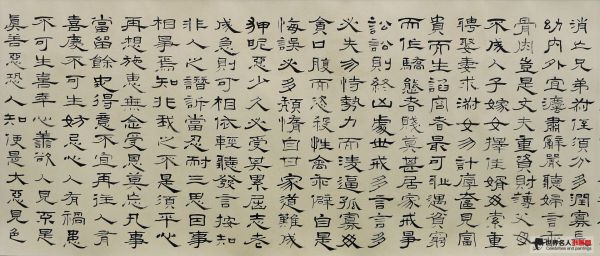 消亡兄弟叔侄須分多潤寡長
幼內外宜灋肅辭嚴聽婦言乖
骨肉豈是丈夫重資財薄父母
不成人子嫁女擇佳婿毋索重
聘娶妻求淑女勿計厚奩見富
貴而生諂容者最可恥遇貧窮
而作驕態者賤莫甚居家戒爭
訟訟則終凶處世戒多言言多
必失勿恃勢力而凌逼孤寡毋
貪口腹而恣殺牲禽乖僻自是
悔誤必多頹惰自甘家道難成
狎昵惡少久必受其累屈志老
成急則可相依輕聽發言按知
非人之譖訴當忍耐三思因事
相爭焉知非我之不是須平心
再想施惠無念受恩莫忘凡事
當留餘地得意不宜再往人有
喜慶不可生妒忌心人有禍患
不可生喜幸心善欲人見不是
真善惡恐人知便是大惡見色
世界名人
Celebrities and paintings